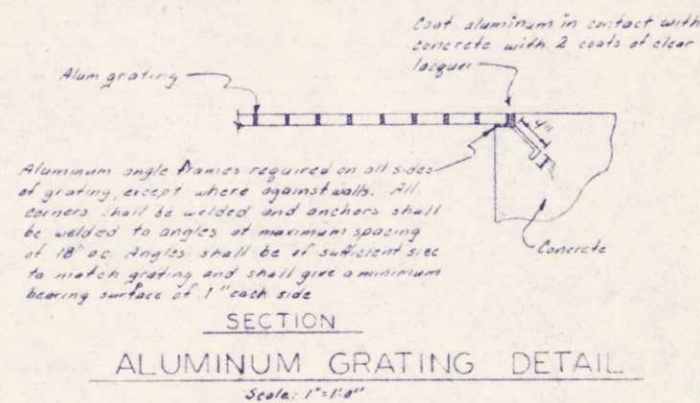 Coat aluminum in contact with
concrete with 2 coats of clear
lacquer
Alum grating
4"
Aluminum angle frames required on all sides
of grating, except where against walls. All
corners shall be welded and anchors shall
be welded to angles at maximum spacing
of 18" oc. Angles shall be of sufficient size
to match grating and shall give a minimum
bearing surface of 1" each side
Concrete
SECTION
ALUMINUM GRATING DETAIL
Scale: 1"=1'-0"